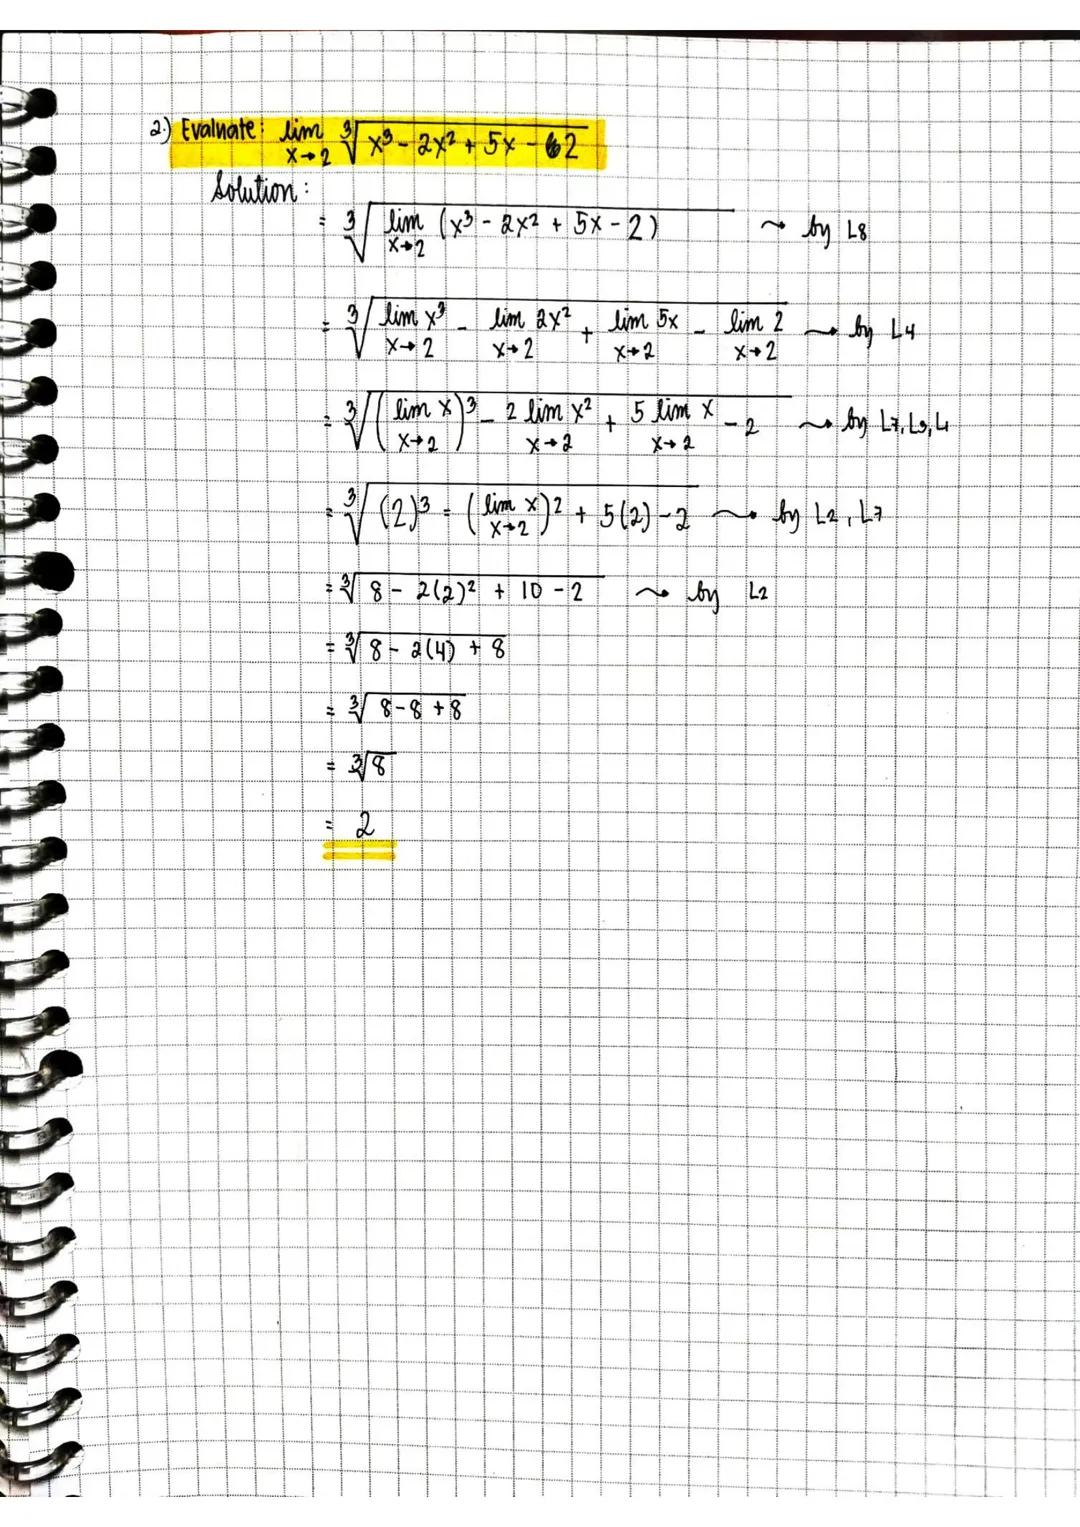 2.) Evaluate: lim x→2 ∛(x³ - 2x² + 5x - 2)
Solution:
= ∛(lim x→2 (x³ - 2x² + 5x - 2)) ⇝ by L8
= ∛(lim x→2 x³ - lim x→2 2x² + lim x→2 5x - lim x→2 2) ⇝ by L4
= ∛((lim x→2 x)³ - 2 lim x→2 x² + 5 lim x→2 x - 2) ⇝ by L7, L3, L1
= ∛((2)³ - (lim x→2 x)² + 5(2) - 2) ⇝ by L2, L7
= ∛(8 - 2(2)² + 10 - 2) ⇝ by L2
= ∛(8 - 2(4) + 8)
= ∛(8 - 8 + 8)
= ∛8
= 2